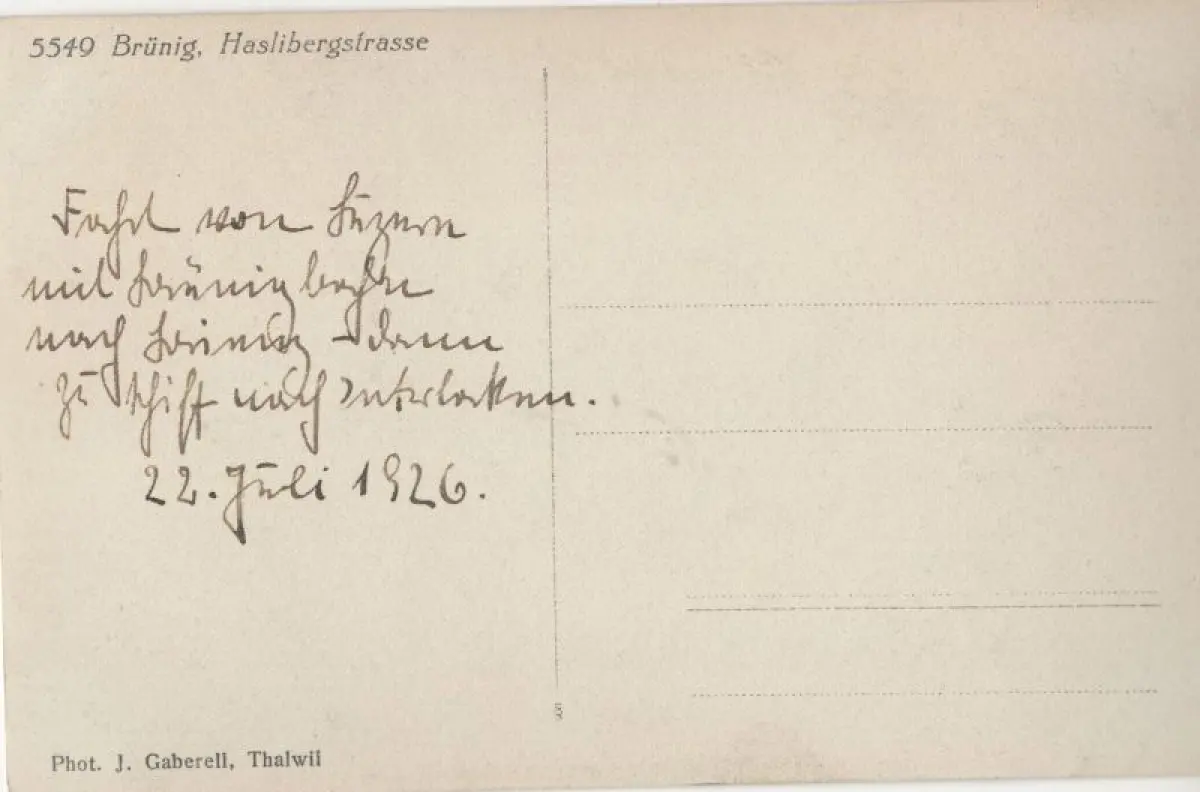 5549 Brünig, Haslibergstrasse
Fahrt von Luzern
mit Brünigbahn
nach Brünig - dann
zu Schiff nach Interlaken.
22. Juli 1926.
Phot. J. Gaberell, Thalwil